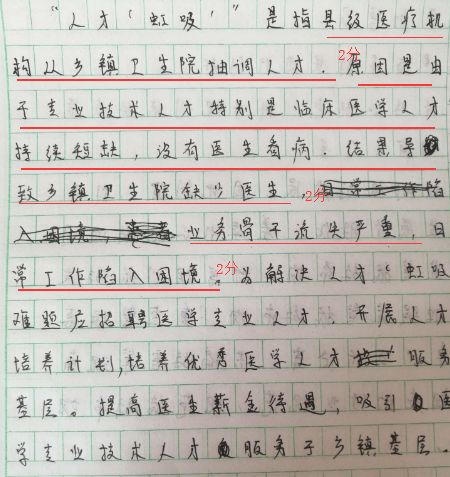 “人才‘虹吸’”是指县级医疗机
构从乡镇卫生院抽调人才。原因是由
2分
于专业技术人才特别是临床医学人才
持续短缺，没有医生看病。结果导
致乡镇卫生院缺少医生，日常工作陷
2分
入困境，业务骨干流失严重，日
常工作陷入困境。为解决人才‘虹吸
2分
难题应招聘医学专业人才。开展人才
培养计划，培养优秀医学人才服务
基层。提高医生薪金待遇，吸引医
学专业技术人才服务于乡镇基层。